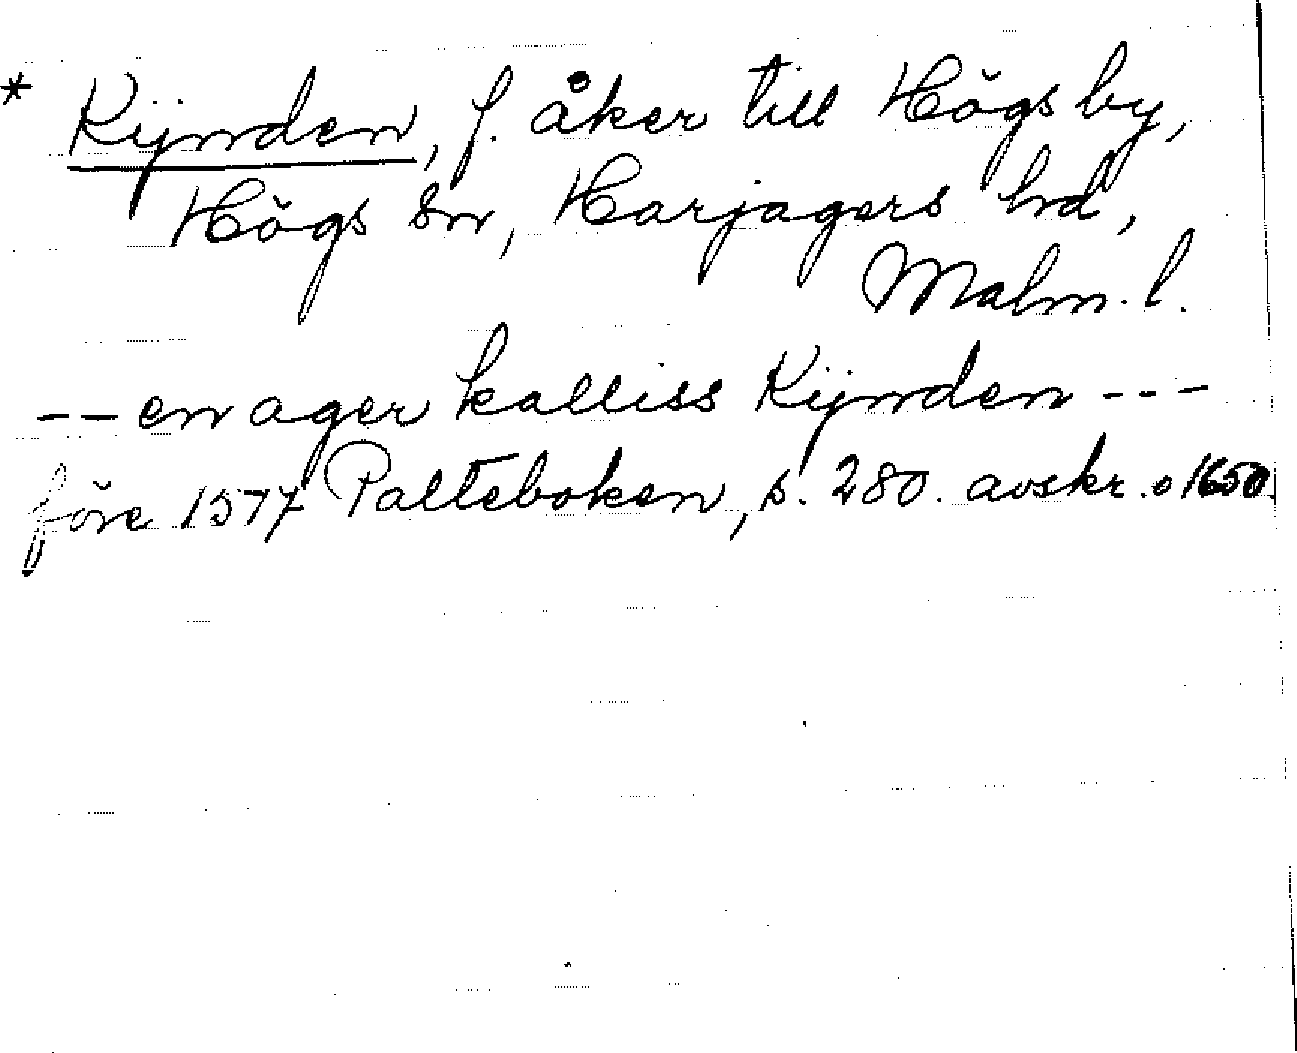 * Kÿnden, f. åker till Högs by,
Högs sn, Harjagers hd,
Malm. l.
-- en ager kalliss Kÿnden ---
före 1577 Palteboken, s. 280. avskr. o 1650.